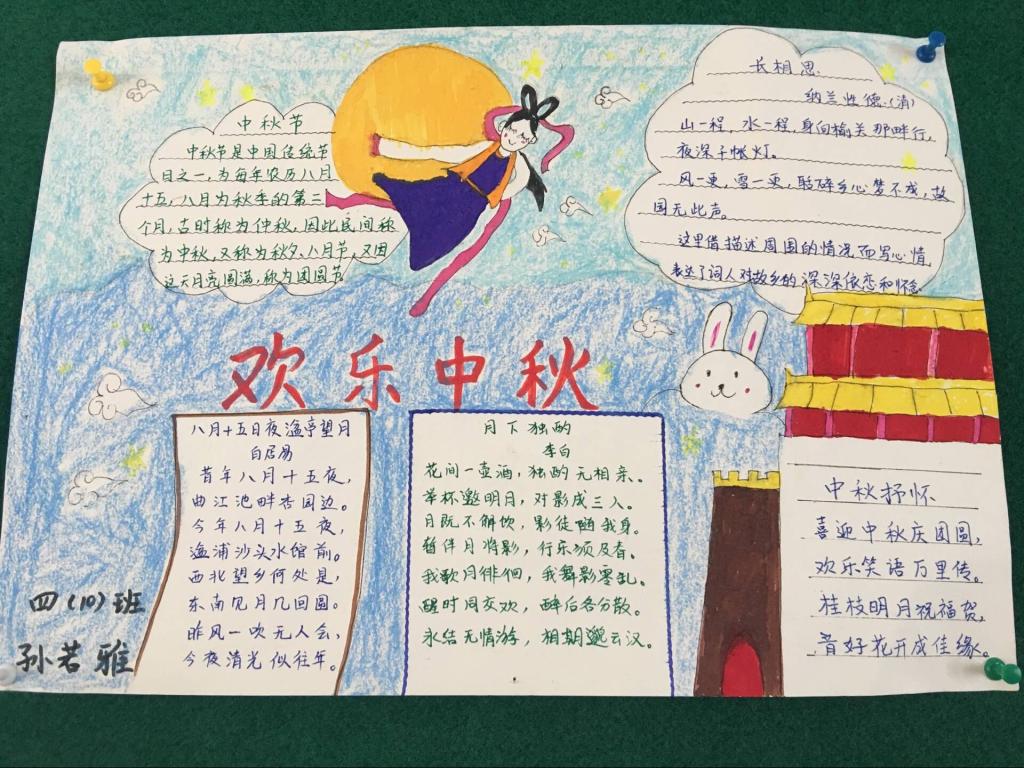 中秋节
中秋节是中国传统节
日之一,为每年农历八月
十五,八月为秋季的第三
个月,古时称为仲秋,因此民间称
为中秋,又称为秋夕、八月节,又因
这天月亮圆满,称为团圆节
长相思
纳兰性德(清)
山一程,水一程,身向榆关那畔行,
夜深千帐灯。
风一更,雪一更,聒碎乡心梦不成,故
园无此声。
这里借描述周围的情况而写心情,
表达了词人对故乡的深深依恋和怀念
欢乐中秋
八月十五日夜湓亭望月
白居易
昔年八月十五夜,
曲江池畔杏园边。
今年八月十五夜,
湓浦沙头水馆前。
西北望乡何处是,
东南见月几回圆。
昨风一吹无人会,
今夜清光似往年。
月下独酌
李白
花间一壶酒,独酌无相亲。
举杯邀明月,对影成三人。
月既不解饮,影徒随我身。
暂伴月将影,行乐须及春。
我歌月徘徊,我舞影零乱。
醒时同交欢,醉后各分散。
永结无情游,相期邈云汉。
中秋抒怀
喜迎中秋庆团圆,
欢乐笑语万里传。
桂枝明月祝福贺,
音好花开成佳缘。
四(10)班
孙若雅